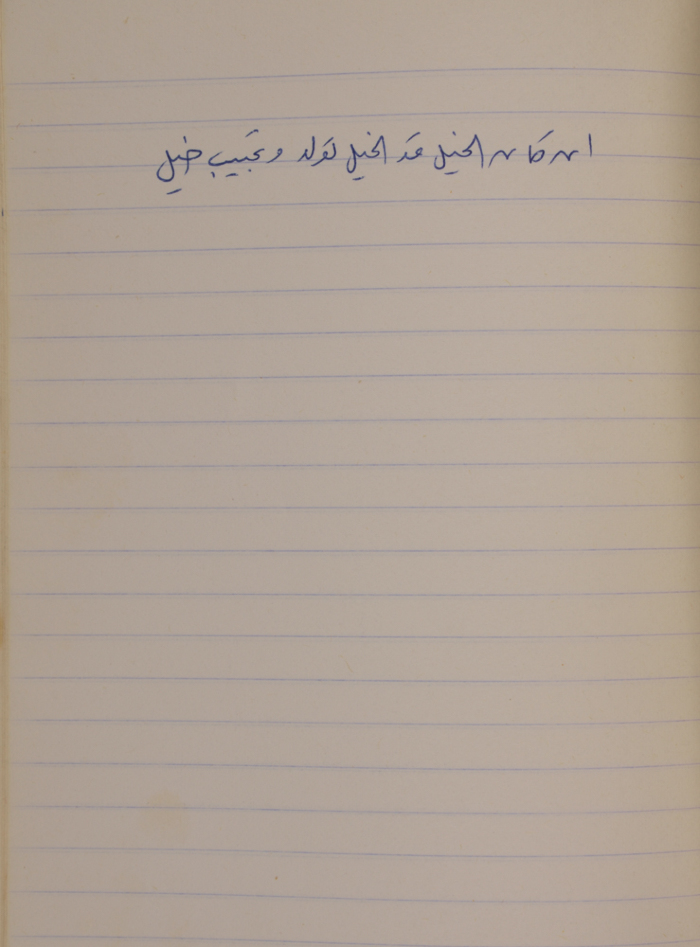 ان كان الخيل قد الخيل تولد وتجيب خيل